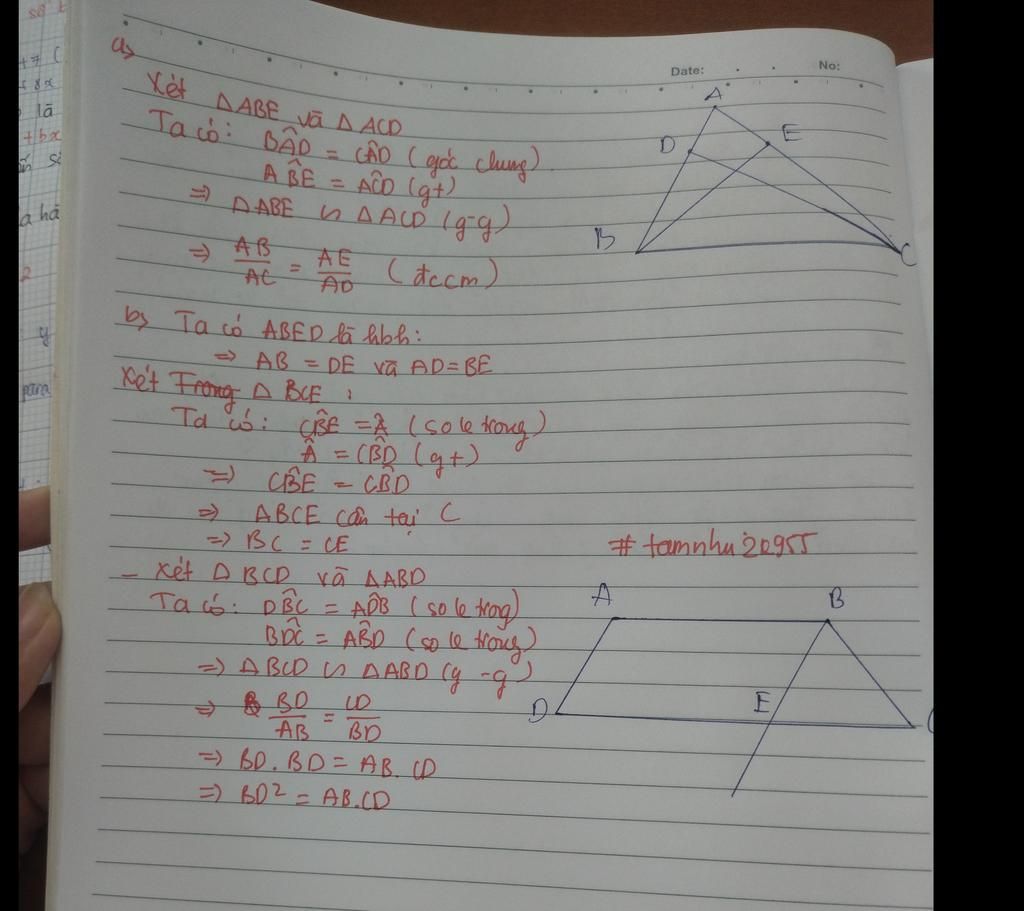 Date: No:
a>
Xét ΔABE và ΔACD
Ta có: BÂD = CÂD (góc chung)
AB̂E = AĈD (gt)
=> ΔABE ∽ ΔACD (g-g)
=> AB/AC = AE/AD (đccm)
b> Ta có ABED là hbh:
=> AB = DE và AD=BE
Xét Trong Δ BCE :
Ta có: CB̂E = Â (so le trong)
Â = CB̂D (gt)
=> CB̂E = CB̂D
=> ABCE cân tại C
=> BC = CE
- Xét Δ BCD và ΔABD
Ta có: DB̂C = AD̂B (so le trog)
BD̂C = AB̂D (so le trong)
=> ΔBCD ∽ ΔABD (g-g)
=> BD/AB = CD/BD
=> BD.BD = AB.CD
=> BD² = AB.CD
A
D
E
B
C
# tamnhu20955
A
B
D
E